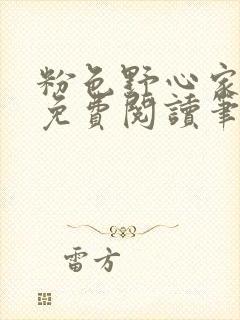 粉色野心家
免費閱讀筆
雷方